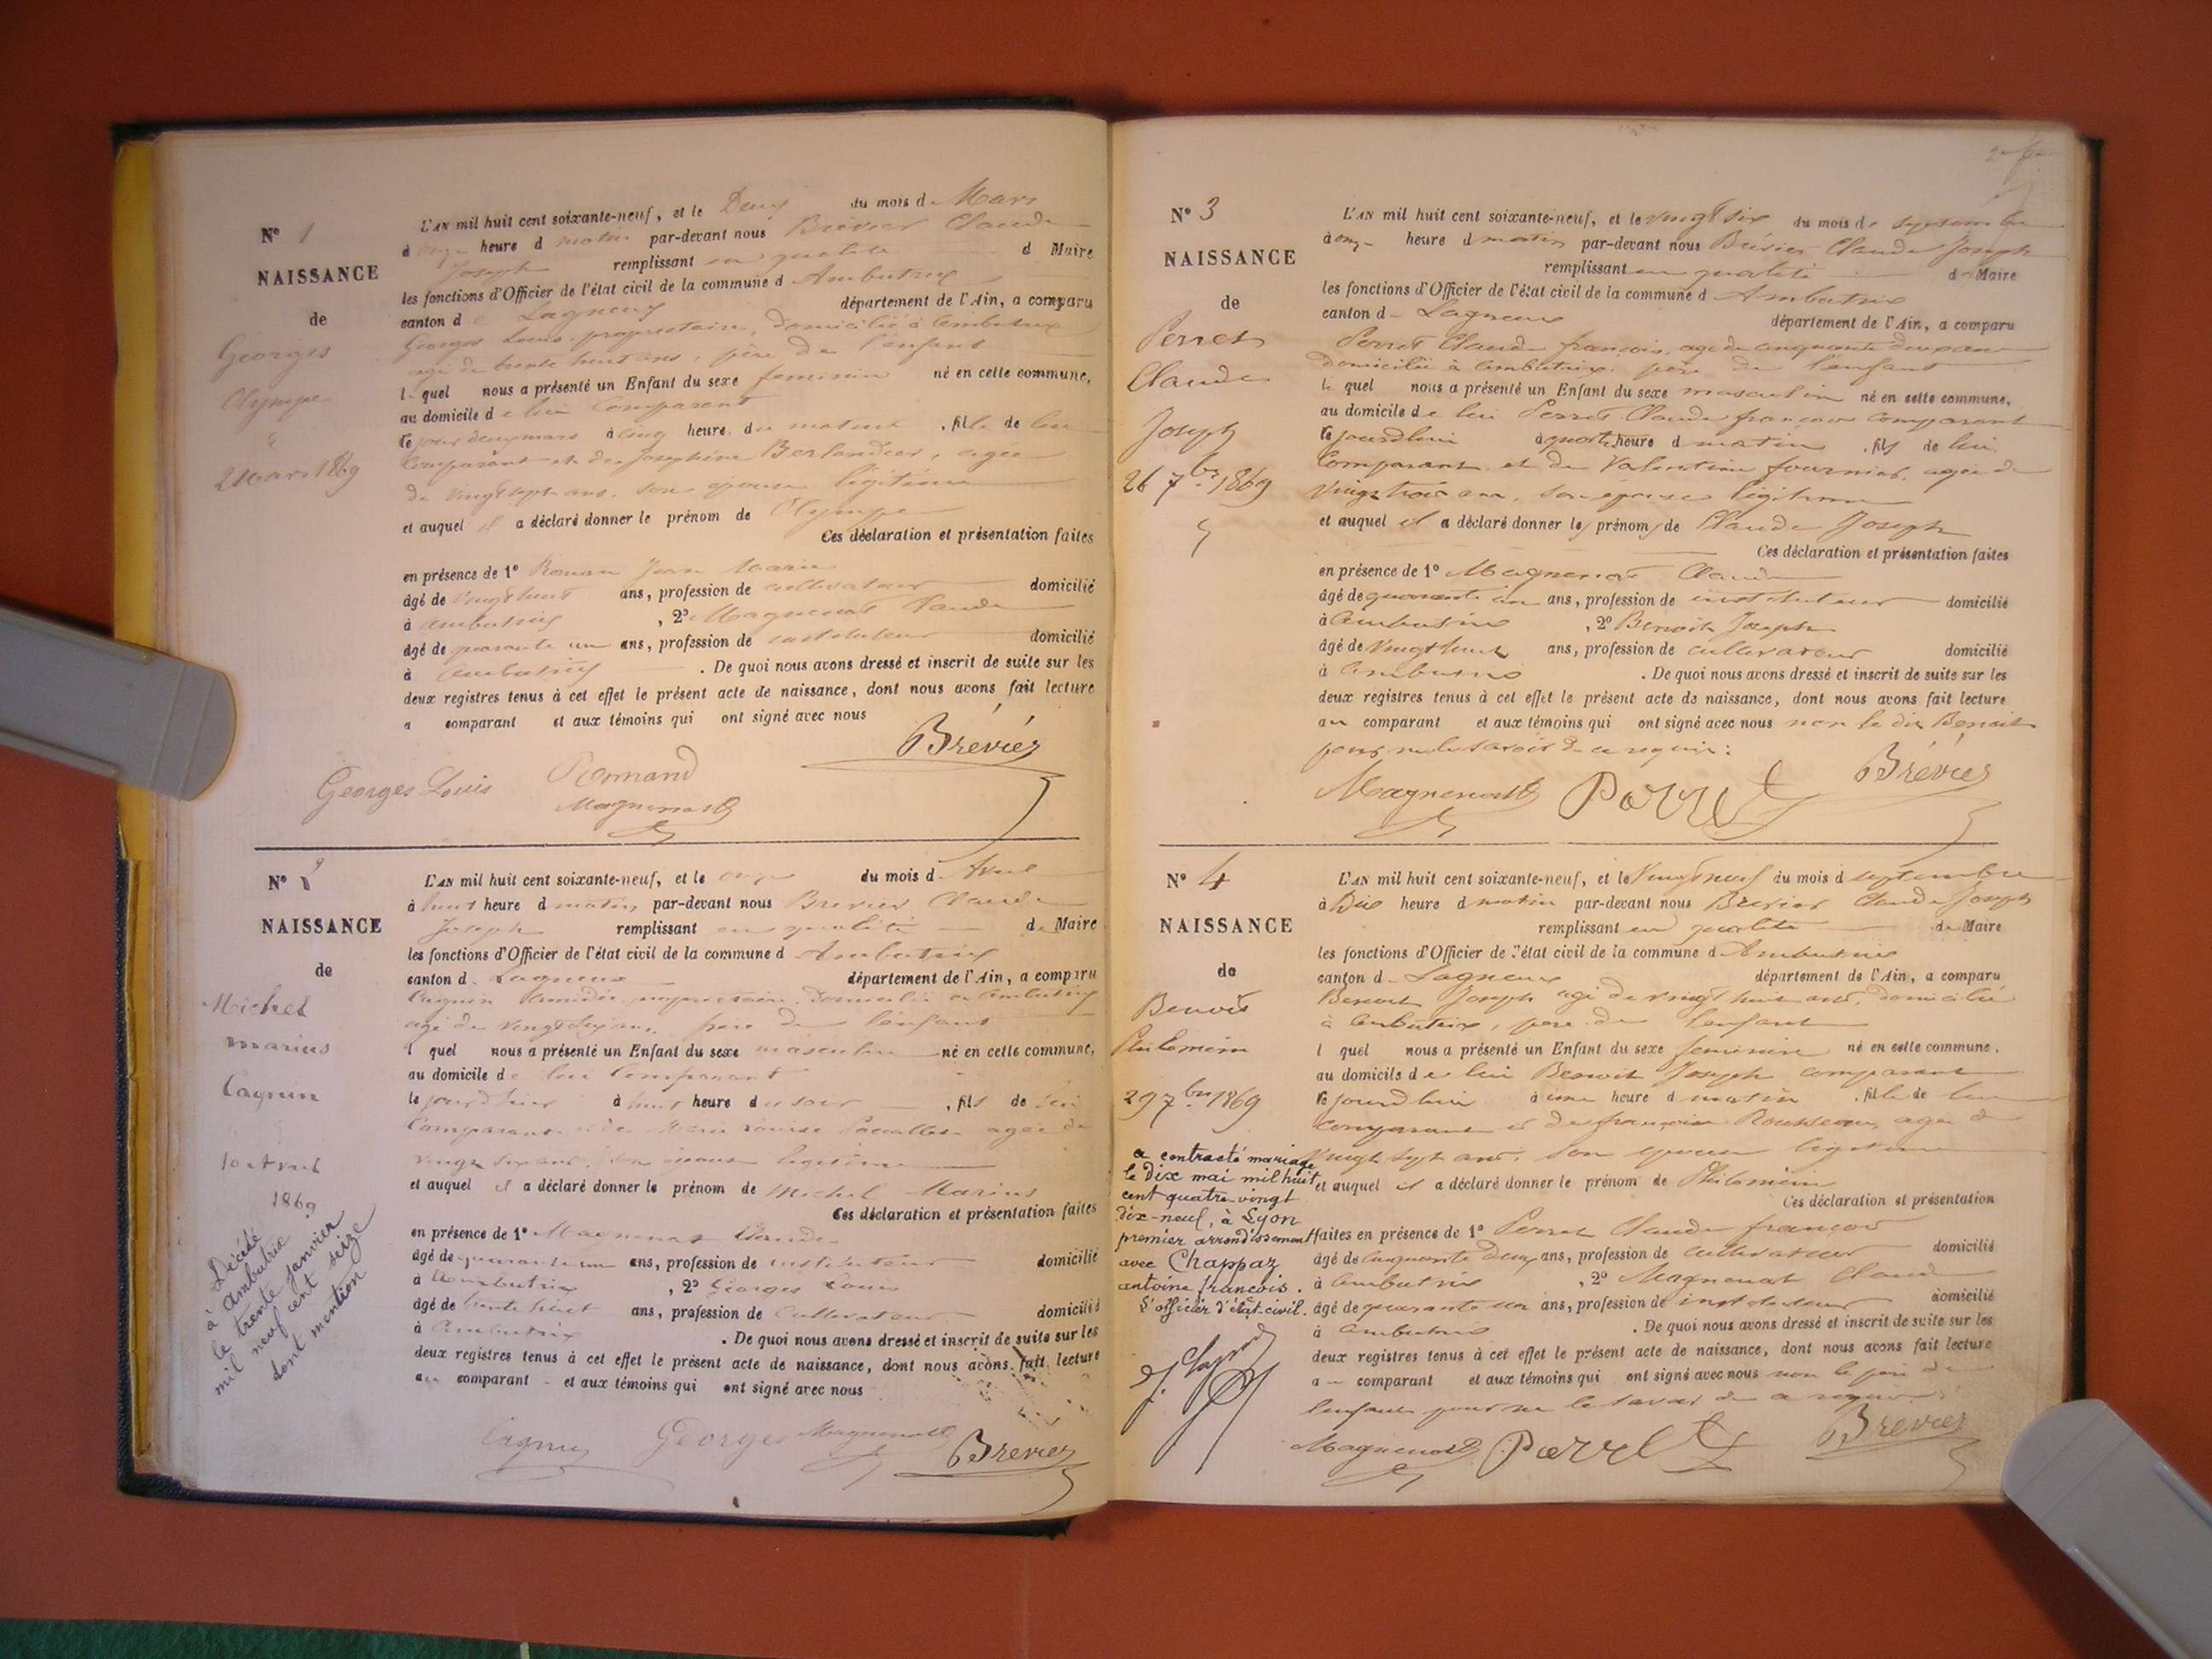 N° 1
NAISSANCE
de
Georges
Olympe
2 Mars 1869
L'AN mil huit cent soixante-neuf, et le Deux du mois de Mars
à onze heure d matin par-devant nous Brévier Claude
Joseph remplissant en qualité d Maire
les fonctions d'Officier de l'état civil de la commune d Ambutrix
canton de Lagneux département de l'Ain, a comparu
Georges Louis, propriétaire, domicilié à Ambutrix
agé de trente huit ans, père de l'enfant
lequel nous a présenté un Enfant du sexe feminin né en cette commune,
au domicile de lui Comparant
le jour deux mars à cinq heure du matin, fille de lui
Comparant et de Joséphine Berlandier, agée
de vingt sept ans, son épouse légitime
et auquel il a déclaré donner le prénom de Olympe
Ces déclaration et présentation faites
en présence de 1° Roman Jean Marie
âgé de vingt huit ans, profession de cultivateur domicilié
à ambutrix, 2° Magnenat Claude
âgé de quarante un ans, profession de instituteur domicilié
à ambutrix. De quoi nous avons dressé et inscrit de suite sur les
deux registres tenus à cet effet le présent acte de naissance, dont nous avons fait lecture
a comparant et aux témoins qui ont signé avec nous
Brévier
Georges Louis Romand
Magnenat
N° 2
NAISSANCE
de
Michel
marius
Cagnin
10 avril
1869
Décédé
à Ambutrix
le trente janvier
mil neuf cent seize
dont mention
L'AN mil huit cent soixante-neuf, et le onze du mois d Avril
à huit heure d matin par-devant nous Brevier Claude
Joseph remplissant en qualité de Maire
les fonctions d'Officier de l'état civil de la commune d Ambutrix
canton d Lagneux département de l'Ain, a comparu
Cagnin propriétaire, domicilié à Ambutrix
agé de vingt six ans, père de l'enfant
l quel nous a présenté un Enfant du sexe masculin né en cette commune,
au domicile de lui Comparant
le jour d'hier à huit heure du soir, fils de lui
Comparant et de Marie Louise agée de
vingt six ans, son épouse légitime
et auquel il a déclaré donner le prénom de Michel Marius
Ces déclaration et présentation faites
en présence de 1° Magnenat Claude
âgé de quarante un ans, profession de instituteur domicilié
à Ambutrix, 2° Georges Louis
âgé de trente huit ans, profession de Cultivateur domicilié
à Ambutrix. De quoi nous avons dressé et inscrit de suite sur les
deux registres tenus à cet effet le présent acte de naissance, dont nous avons fait lecture
au comparant et aux témoins qui ont signé avec nous
Cagnin Georges Magnenat Brévier
N° 3
NAISSANCE
de
Perret
Claude
Joseph
26 7bre 1869
L'AN mil huit cent soixante-neuf, et le vingt six du mois de septembre
à onze heure d matin par-devant nous Brévier Claude Joseph
remplissant en qualité de Maire
les fonctions d'Officier de l'état civil de la commune d Ambutrix
canton d Lagneux département de l'Ain, a comparu
Perret Claude françois, agé de cinquante deux ans
domicilié à Ambutrix, père de l'enfant
le quel nous a présenté un Enfant du sexe masculin né en cette commune,
au domicile de lui Perret Claude françois comparant
le jourdhui à quatre heure d matin, fils de lui
Comparant et de Valentine fournier, agée de
vingt trois ans, son épouse légitime
et auquel il a déclaré donner les prénoms de Claude Joseph
Ces déclaration et présentation faites
en présence de 1° Magnenat Claude
âgé de quarante un ans, profession de instituteur domicilié
à Ambutrix, 2° Benoit Joseph
âgé de vingt huit ans, profession de cultivateur domicilié
à Ambutrix. De quoi nous avons dressé et inscrit de suite sur les
deux registres tenus à cet effet le présent acte de naissance, dont nous avons fait lecture
au comparant et aux témoins qui ont signé avec nous non le dit Benoit
pour ne le savoir de ce requis:
Magnenat Perret Brévier
N° 4
NAISSANCE
de
Benoit
Philomène
29 7bre 1869
a contracté mariage
le Dix mai mil huit
cent quatre-vingt
dix-neuf, à Lyon
premier arrondissement
avec Chappaz
antoine françois.
L'officier d'état-civil.
L'AN mil huit cent soixante-neuf, et le Vingt neuf du mois d septembre
à Dix heure d matin par-devant nous Brevier Claude Joseph
remplissant en qualité de Maire
les fonctions d'Officier de l'état civil de la commune d Ambutrix
canton d Lagneux département de l'Ain, a comparu
Benoit Joseph agé de vingt huit ans, domicilié
à Ambutrix, père de l'enfant
l quel nous a présenté un Enfant du sexe feminin né en cette commune,
au domicile de lui Benoit Joseph comparant
le jourdhui à une heure d matin, fille de lui
comparant et de françoise Rousseau, agée de
Vingt sept ans, son épouse légitime
et auquel il a déclaré donner le prénom de Philomène
Ces déclaration et présentation
faites en présence de 1° Perret Claude françois
âgé de cinquante deux ans, profession de cultivateur domicilié
à Ambutrix, 2° Magnenat Claude
âgé de quarante un ans, profession de instituteur domicilié
à Ambutrix. De quoi nous avons dressé et inscrit de suite sur les
deux registres tenus à cet effet le présent acte de naissance, dont nous avons fait lecture
a comparant et aux témoins qui ont signé avec nous non le père de
l'enfant pour ne le savoir de ce requis
Magnenat Perret Brévier